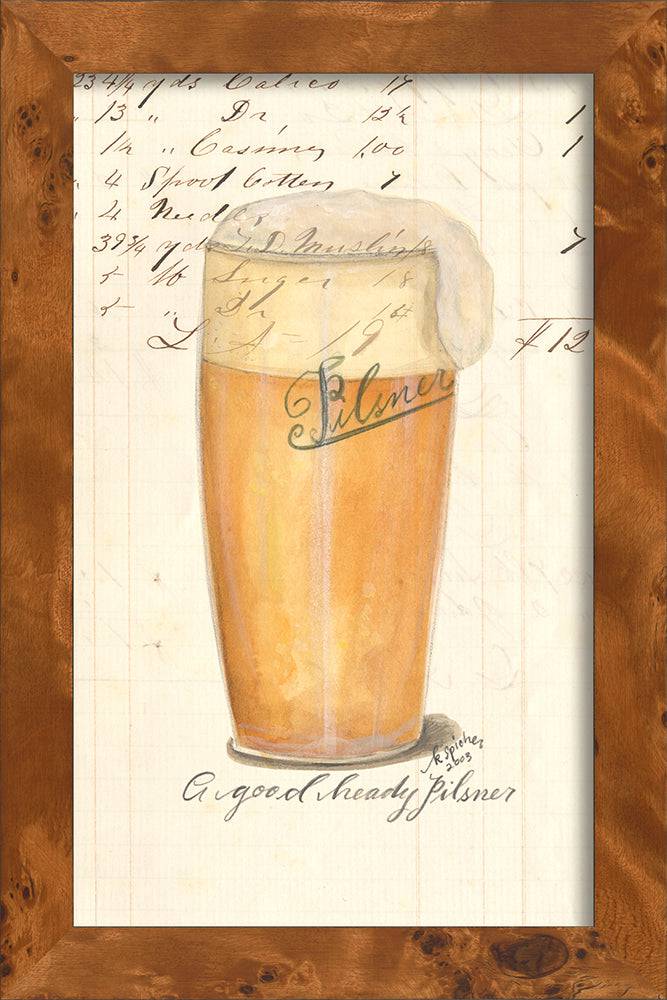 23 4/4 yds Calico 17
" 13 " Dr 12½ 1
1½ " Casimey 1,00 1
" 4 Spool Cotten 7
" 4 Needles
39 3/4 yds T.D. Muslin 7
5 lb Sugar 18
5 " Dr 14
L. A - 19 #12
Pilsner
K Spicher
2003
A good heady Pilsner